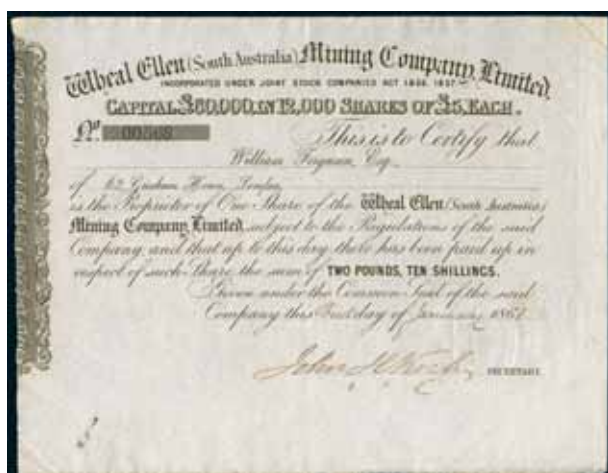 Wheal Ellen (South Australia) Mining Company, Limited.
INCORPORATED UNDER JOINT STOCK COMPANIES ACT 1856, 1857.
CAPITAL £60,000, IN 12,000 SHARES OF £5, EACH.
No. 00568 This is to Certify that
William Ferguson, Esq.
of 62 Gresham House, London
is the Proprietor of One Share of the Wheal Ellen (South Australia)
Mining Company, Limited, subject to the Regulations of the said
Company, and that up to this day there has been paid up in
respect of such Share the sum of TWO POUNDS, TEN SHILLINGS.
Given under the Common Seal of the said
Company this First day of January 186
John
SECRETARY.